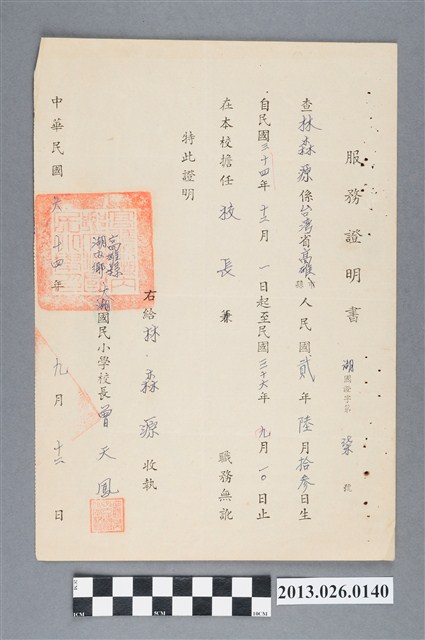 服務證明書
湖國證字第 柒 號
查林森源係台灣省高雄縣人民國貳年陸月拾參日生
自民國三十四年十二月一日起至民國三十六年九月一〇日止
在本校擔任 校長 兼 職務無訛
特此證明
右給林森源收執
高雄縣
湖內鄉大湖國民小學校長曾天鳳
中華民國六十四年九月十二日
1CM
5CM
10CM
2013.026.0140